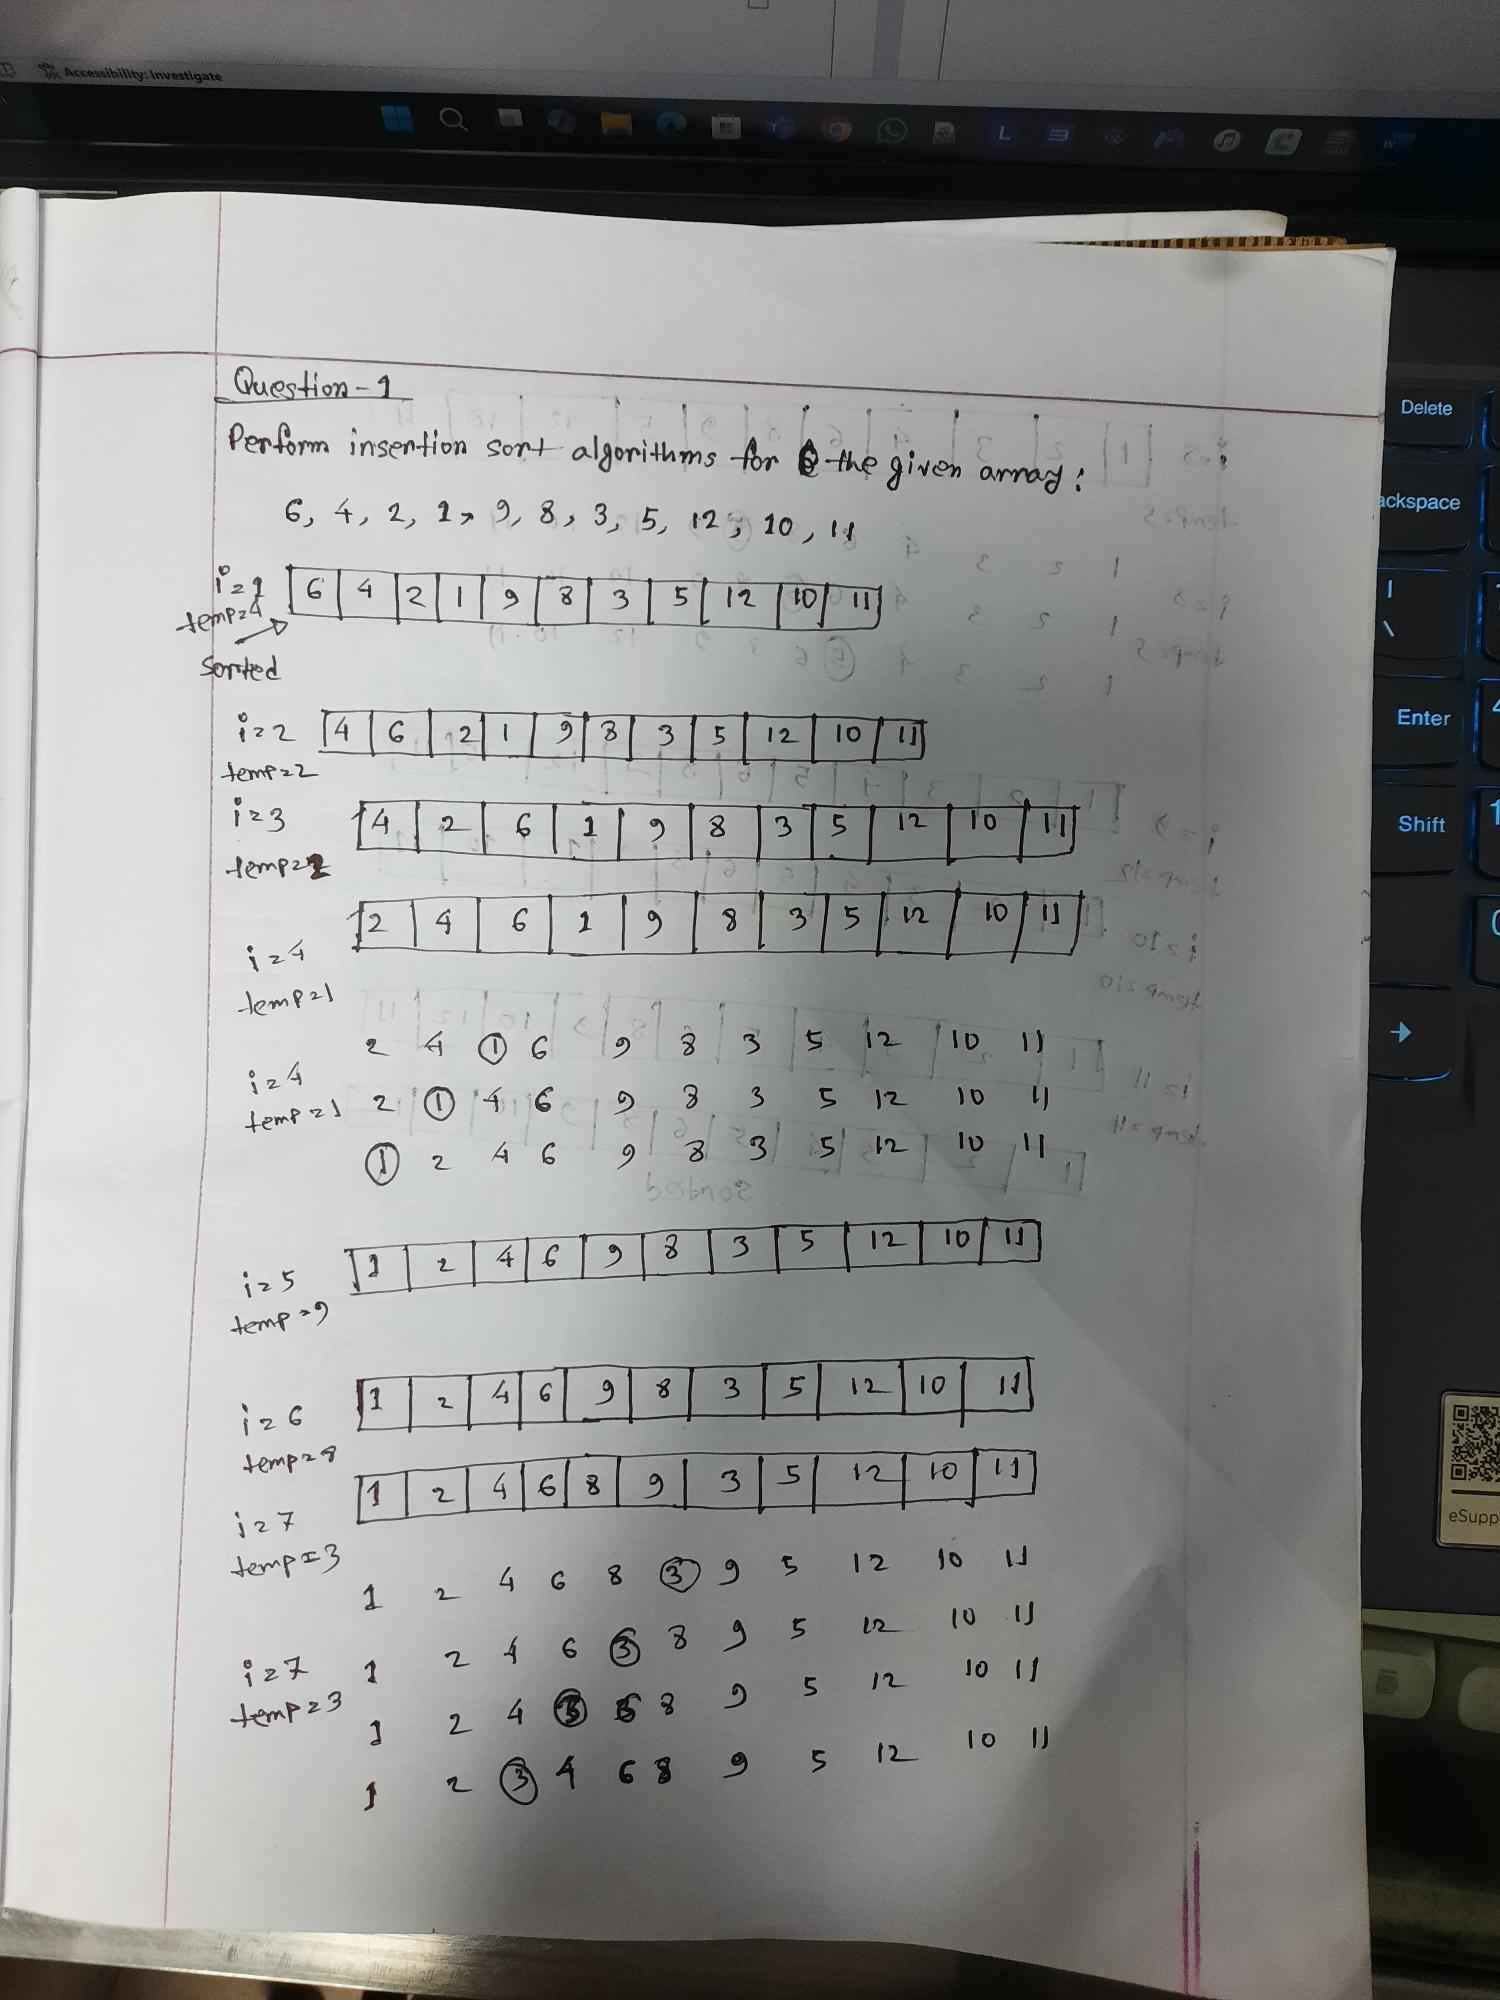 Accessibility: Investigate
Question-1
Perform insertion sort algorithms for the given array:
6, 4, 2, 1, 9, 8, 3, 5, 12, 10, 11
i=1 6 4 2 1 9 8 3 5 12 10 11
temp=4
sorted
i=2 4 6 2 1 9 8 3 5 12 10 11
temp=2
i=3 4 2 6 1 9 8 3 5 12 10 11
temp=2
2 4 6 1 9 8 3 5 12 10 11
i=4
temp=1
2 4 1 6 9 8 3 5 12 10 11
i=4
temp=1 2 1 4 6 9 8 3 5 12 10 11
1 2 4 6 9 8 3 5 12 10 11
i=5 1 2 4 6 9 8 3 5 12 10 11
temp=9
i=6 1 2 4 6 9 8 3 5 12 10 11
temp=8
1 2 4 6 8 9 3 5 12 10 11
i=7
temp=3
1 2 4 6 8 3 9 5 12 10 11
i=7 1 2 4 6 3 8 9 5 12 10 11
temp=3
1 2 4 3 6 8 9 5 12 10 11
1 2 3 4 6 8 9 5 12 10 11
Delete
ackspace
|
\
Enter
Shift
→
eSupp